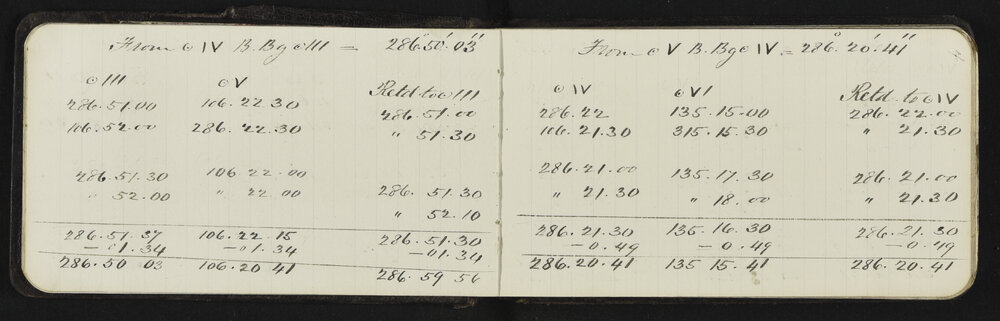 From ⊙ IV B. Bg ⊙ III = 286°.50'.03"
⊙ III ⊙ V Retd to ⊙ III
286.51.00 106.22.30 286.51.00
106.52.00 286.22.30 " 51.30
286.51.30 106 22.00 286. 51.30
" 52.00 " 22.00 " 52.10
286.51.37 106.22.15 286.51.30
—01.34 —01.34 —01.34
286.50 03 106.20 41 286.59 56
From ⊙ V B. Bg ⊙ IV = 286°.20'.41"
⊙ IV ⊙ VI Retd. to ⊙ IV
286.22 135.15.00 286.22.00
106.21.30 315.15.30 " 21.30
286.21.00 135.17.30 286.21.00
" 21.30 " 18.00 " 21.30
286.21.30 135.16.30 286.21.30
—0.49 —0.49 —0.49
286.20.41 135 15.41 286.20.41